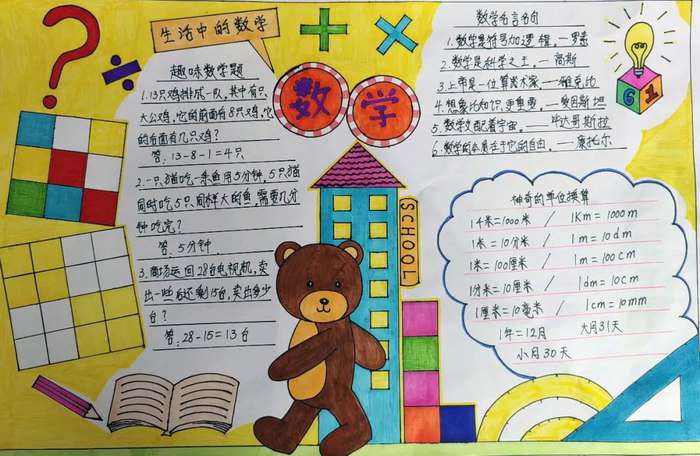 生活中的数学
趣味数学题
1.13只鸡排成一队,其中有只
大公鸡,它的前面有8只鸡,它
的后面有几只鸡?
答:13-8-1=4只
2.一只猫吃一条鱼用5分钟,5只猫
同时吃5只同样大的鱼,需要几分
钟吃完?
答:5分钟
3.商场运回28台电视机,卖
出一些后还剩15台,卖出多少
台?
答:28-15=13台
数学
SCHOOL
数学名言名句
1.数学是符号加逻辑。——罗素
2.数学是科学之王。——高斯
3.上帝是一位算术家。——雅克比
4.想象比知识更重要。——爱因斯坦
5.数学支配着宇宙。——毕达哥斯拉
6.数学的本质在于它的自由。——康托尔
6 1
神奇的单位换算
1千米=1000米 / 1Km=1000m
1米=10分米 / 1m=10dm
1米=100厘米 / 1m=100cm
1分米=10厘米 / 1dm=10cm
1厘米=10毫米 / 1cm=10mm
1年=12月 大月31天
小月30天